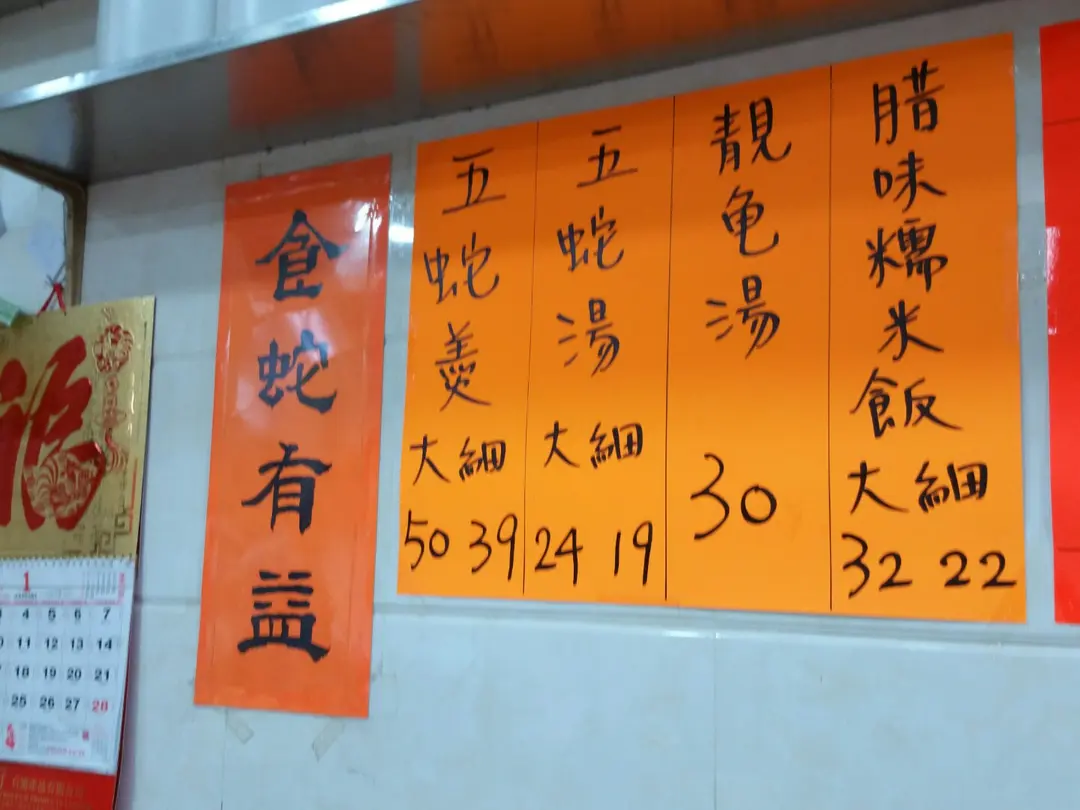 食蛇有益
五蛇羹
大 細
50 39
五蛇湯
大 細
24 19
靚龟湯
30
腊味糯米飯
大 細
32 22
福
1
4 5 6 7
11 12 13 14
18 19 20 21
25 26 27 28